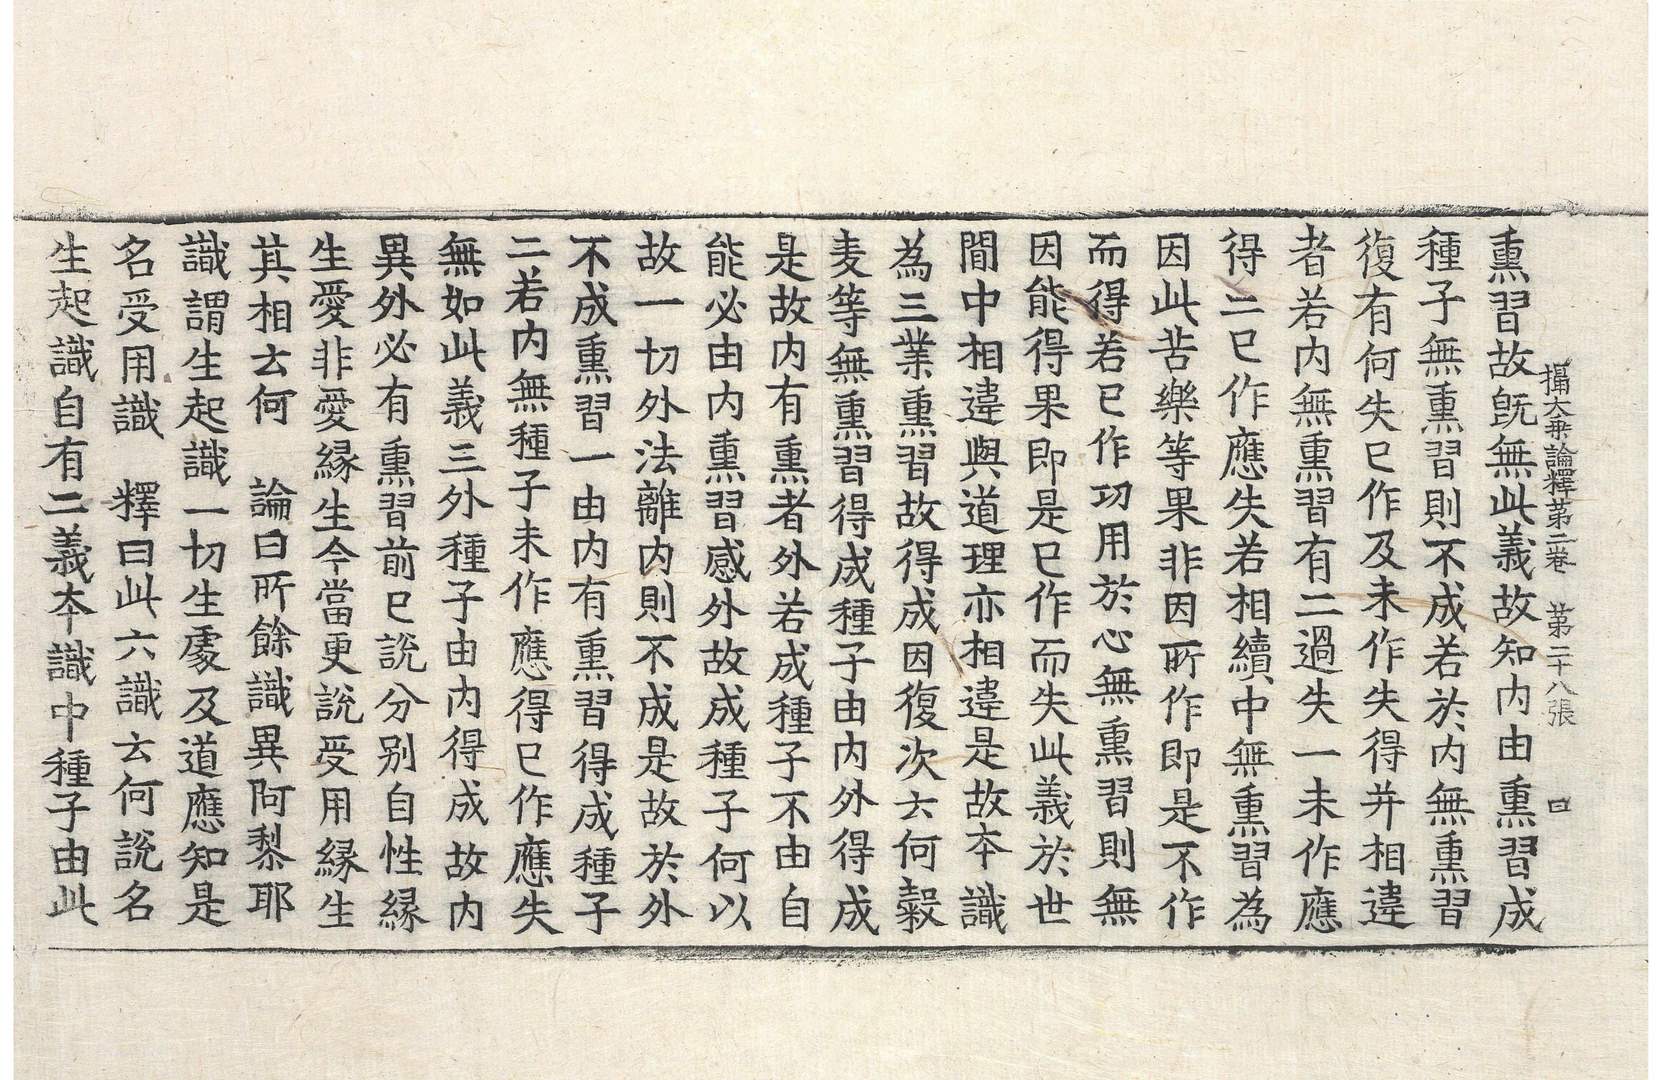 攝大乘論釋第二卷　第二十八張　曰
熏習故旣無此義故知內由熏習成
種子無熏習則不成若於內無熏習
復有何失已作及未作失得并相違
者若內無熏習有二過失一未作應
得二已作應失若相續中無熏習為
因此苦樂等果非因所作即是不作
而得若已作功用於心無熏習則無
因能得果即是已作而失此義於世
閒中相違與道理亦相違是故本識
為三業熏習故得成因復次云何穀
麦等無熏習得成種子由內外得成
是故內有熏者外若成種子不由自
能必由內熏習感外故成種子何以
故一切外法離內則不成是故於外
不成熏習一由內有熏習得成種子
二若內無種子未作應得已作應失
無如此義三外種子由內得成故內
異外必有熏習前已說分別自性緣
生愛非愛緣生今當更說受用緣生
其相云何　論曰所餘識異阿黎耶
識謂生起識一切生處及道應知是
名受用識　釋曰此六識云何說名
生起識自有二義本識中種子由此